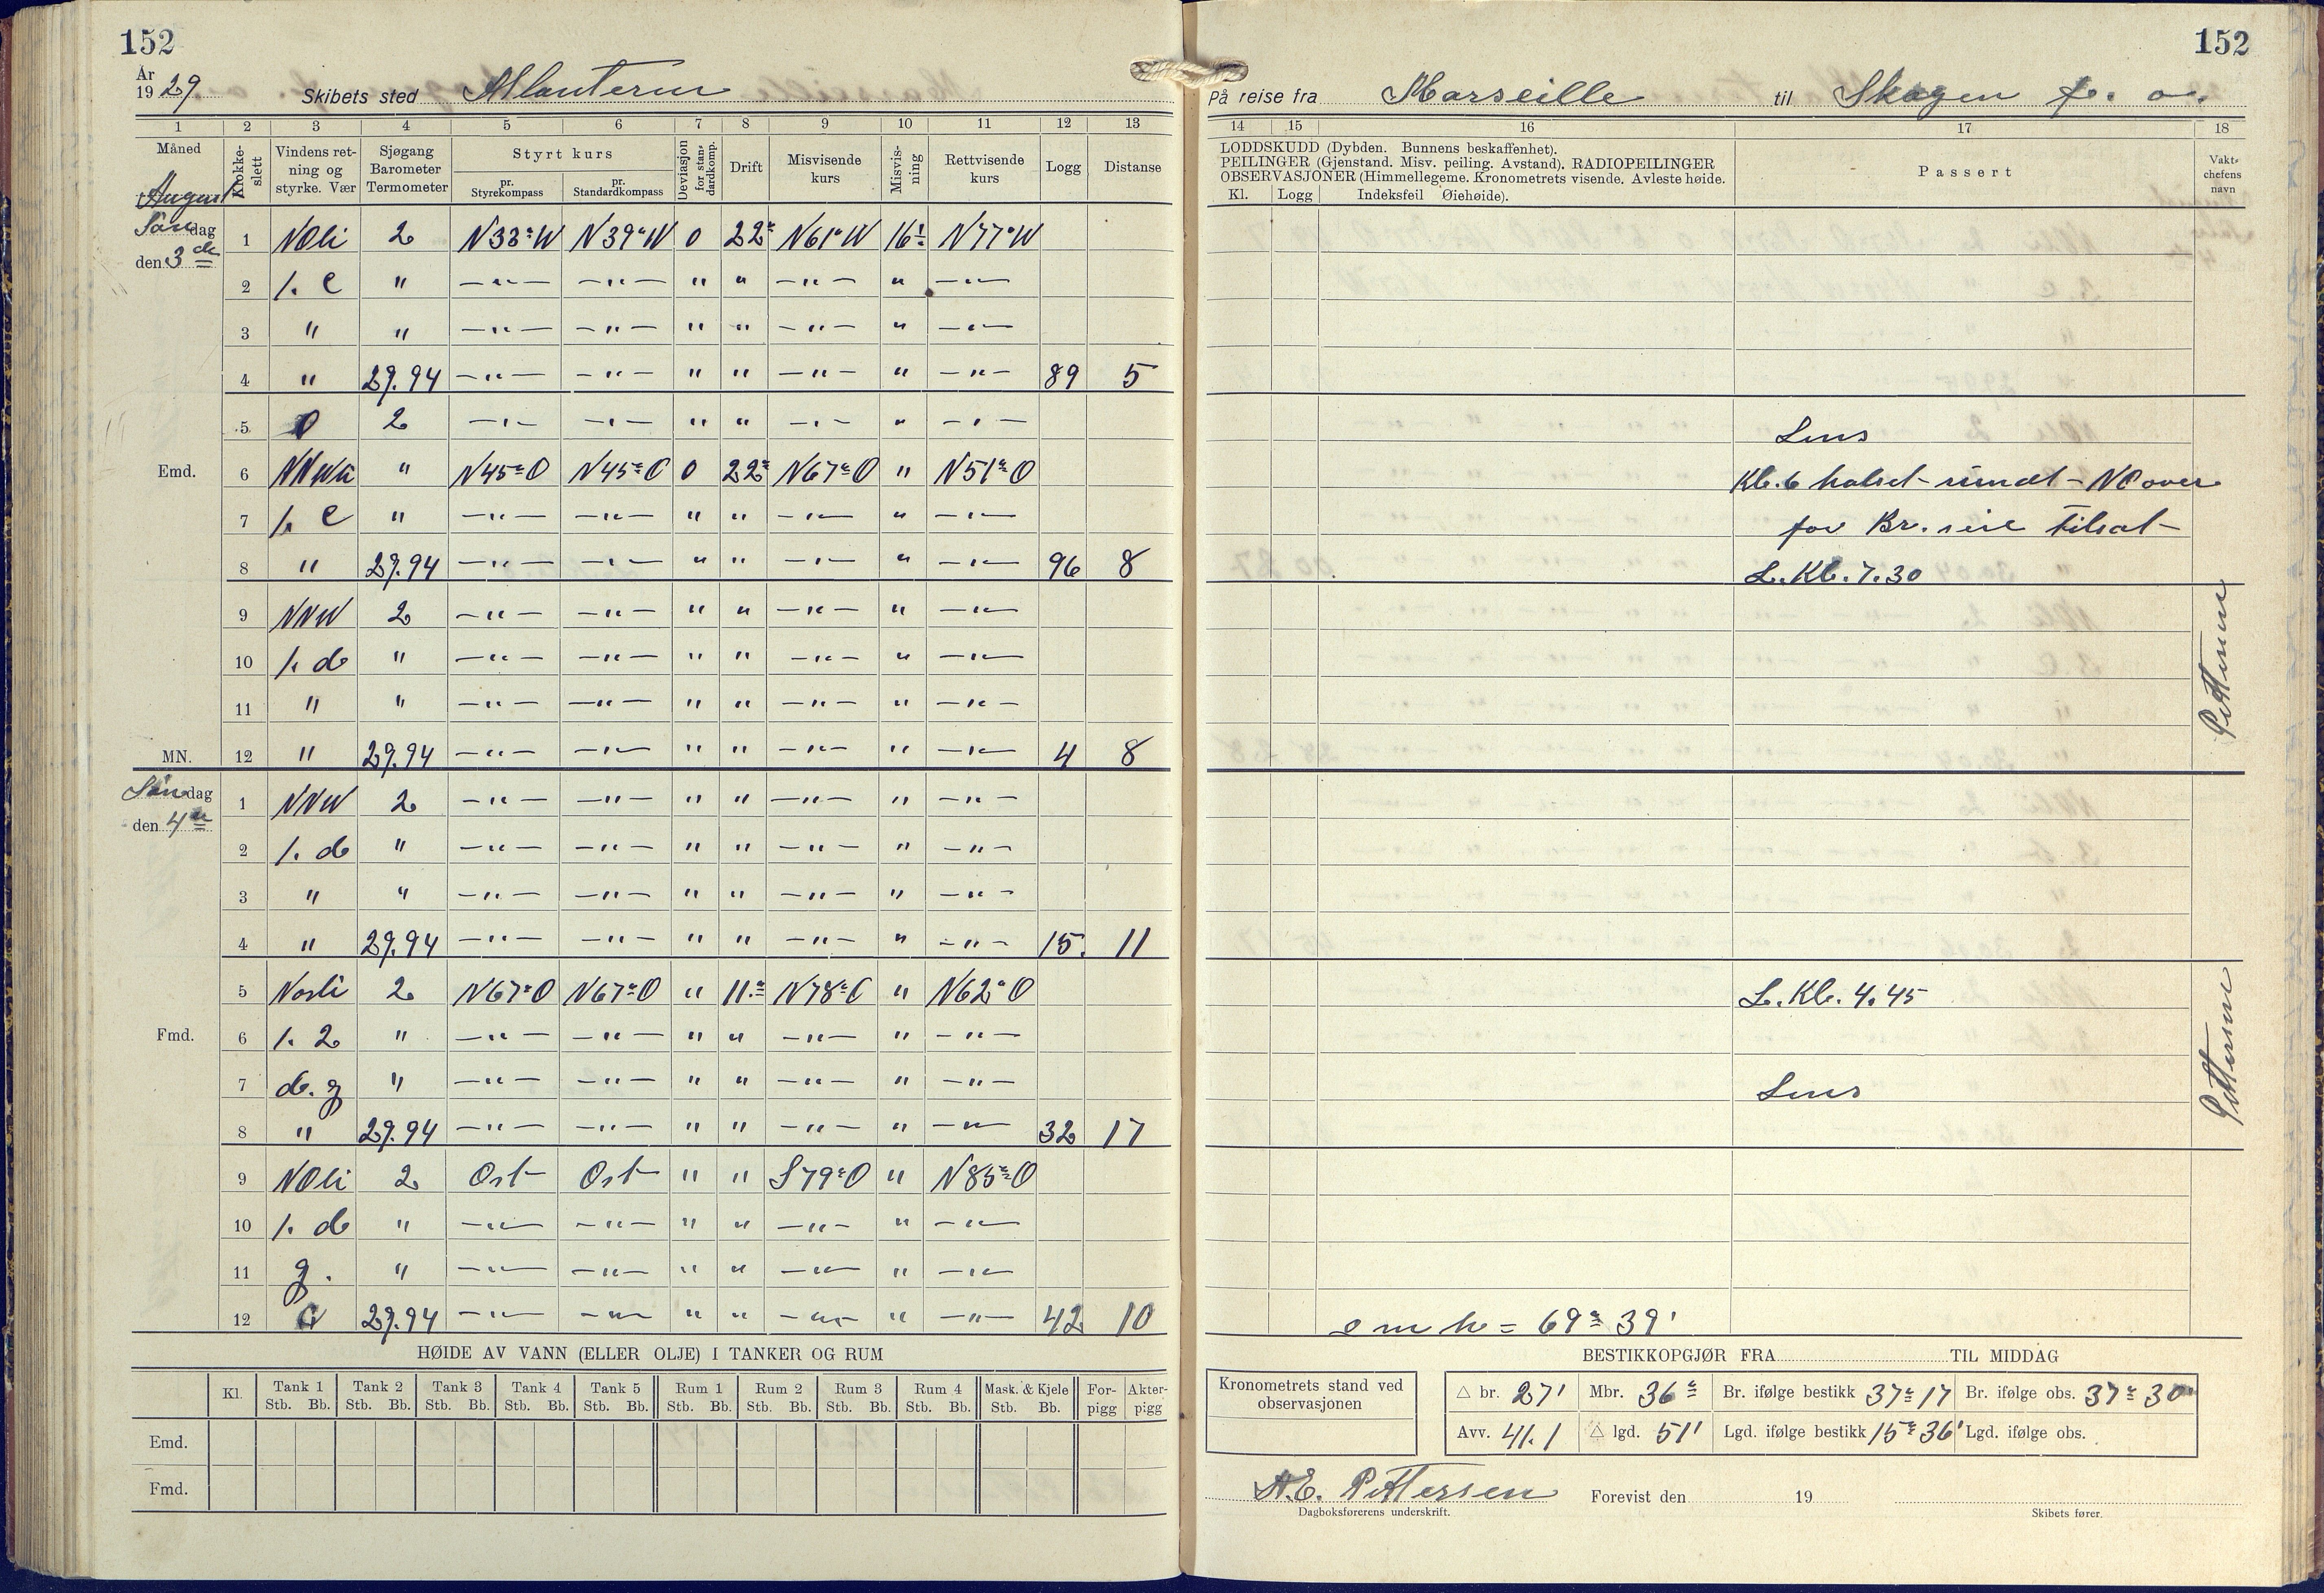 152
År
19 29
Skibets sted Atlanteren
1 2 3 4 5 6 7 8 9 10 11 12 13
Måned
August
Klokke-
slett
Vindens ret-
ning og
styrke. Vær
Sjøgang
Barometer
Termometer
Styrt kurs
pr.
Styrekompass
pr.
Standardkompass
Deviasjon
for stan-
dardkomp.
Drift
Misvisende
kurs
Misvis-
ning
Rettvisende
kurs
Logg
Distanse
dag
den 3 de
1 NOli 2 N39°W 0 22° N61°W 16° N77°W
2 1. c " —"— —"— " " —"— " —"—
3 " " —"— —"— " " —"— " —"—
4 " 29.94 —"— —"— " " —"— " —"— 89 5
5 2 —"— —"— " " —"— " —"—
Emd.
6 " N45°O N45°O 0 22° N67°O " N51°O
7 1. c " —"— —"— " " —"— " —"—
8 " 29.94 —"— —"— " " —"— " —"— 96 8
9 NNW 2 —"— —"— " " —"— " —"—
10 1. d " —"— —"— " " —"— " —"—
11 " " —"— —"— " " —"— " —"—
MN. 12 " 29.94 —"— —"— " " —"— " —"— 4 8
Søndag
den 4 de
1 NNW 2 —"— —"— " " —"— " —"—
2 1. d " —"— —"— " " —"— " —"—
3 " " —"— —"— " " —"— " —"—
4 " 29.94 —"— —"— " " —"— " —"— 15. 11
5 2 N67°O N67°O " 11° N78°O " N62°O
Fmd.
6 1. 2 " —"— —"— " " —"— " —"—
7 d. g " —"— —"— " " —"— " —"—
8 " 29.94 —"— —"— " " —"— " —"— 32 17
9 NOli 2 Ost Ost " " S79°O " N85°O
10 1. d " —"— —"— " " —"— " —"—
11 g. " —"— —"— " " —"— " —"—
12 29.94 —"— —"— " " —"— " —"— 42 10
HØIDE AV VANN (ELLER OLJE) I TANKER OG RUM
Kl. Tank 1 Tank 2 Tank 3 Tank 4 Tank 5 Rum 1 Rum 2 Rum 3 Rum 4 Mask. & Kjele For-
pigg Akter-
pigg
Stb. Bb. Stb. Bb. Stb. Bb. Stb. Bb. Stb. Bb. Stb. Bb. Stb. Bb. Stb. Bb. Stb. Bb. Stb. Bb.
Emd.
Fmd.
152
På reise fra Marseille til Skagen f. o.
14 15 16 17 18
LODDSKUDD (Dybden. Bunnens beskaffenhet).
PEILINGER (Gjenstand. Misv. peiling. Avstand). RADIOPEILINGER
OBSERVASJONER (Himmellegeme. Kronometrets visende. Avleste høide.
Kl. Logg Indeksfeil Øiehøide).
Passert
Vakt-
chefens
navn
Lens
Kl. 6 halset rundt - NO over
for Br. seil tilsat
L. Kl. 7.30
Pettersen
L. Kl. 4.45
Lens
Pettersen
o m h = 69° 39'
BESTIKKOPGJØR FRA TIL MIDDAG
Kronometrets stand ved
observasjonen
△ br. 27' Mbr. 36° Br. ifølge bestikk 37° 17 Br. ifølge obs. 37° 30
Avv. 41.1 △ lgd. 51' Lgd. ifølge bestikk 15° 36' Lgd. ifølge obs.
A.E. Pettersen
Dagboksførerens underskrift.
Forevist den 19
Skibets fører.